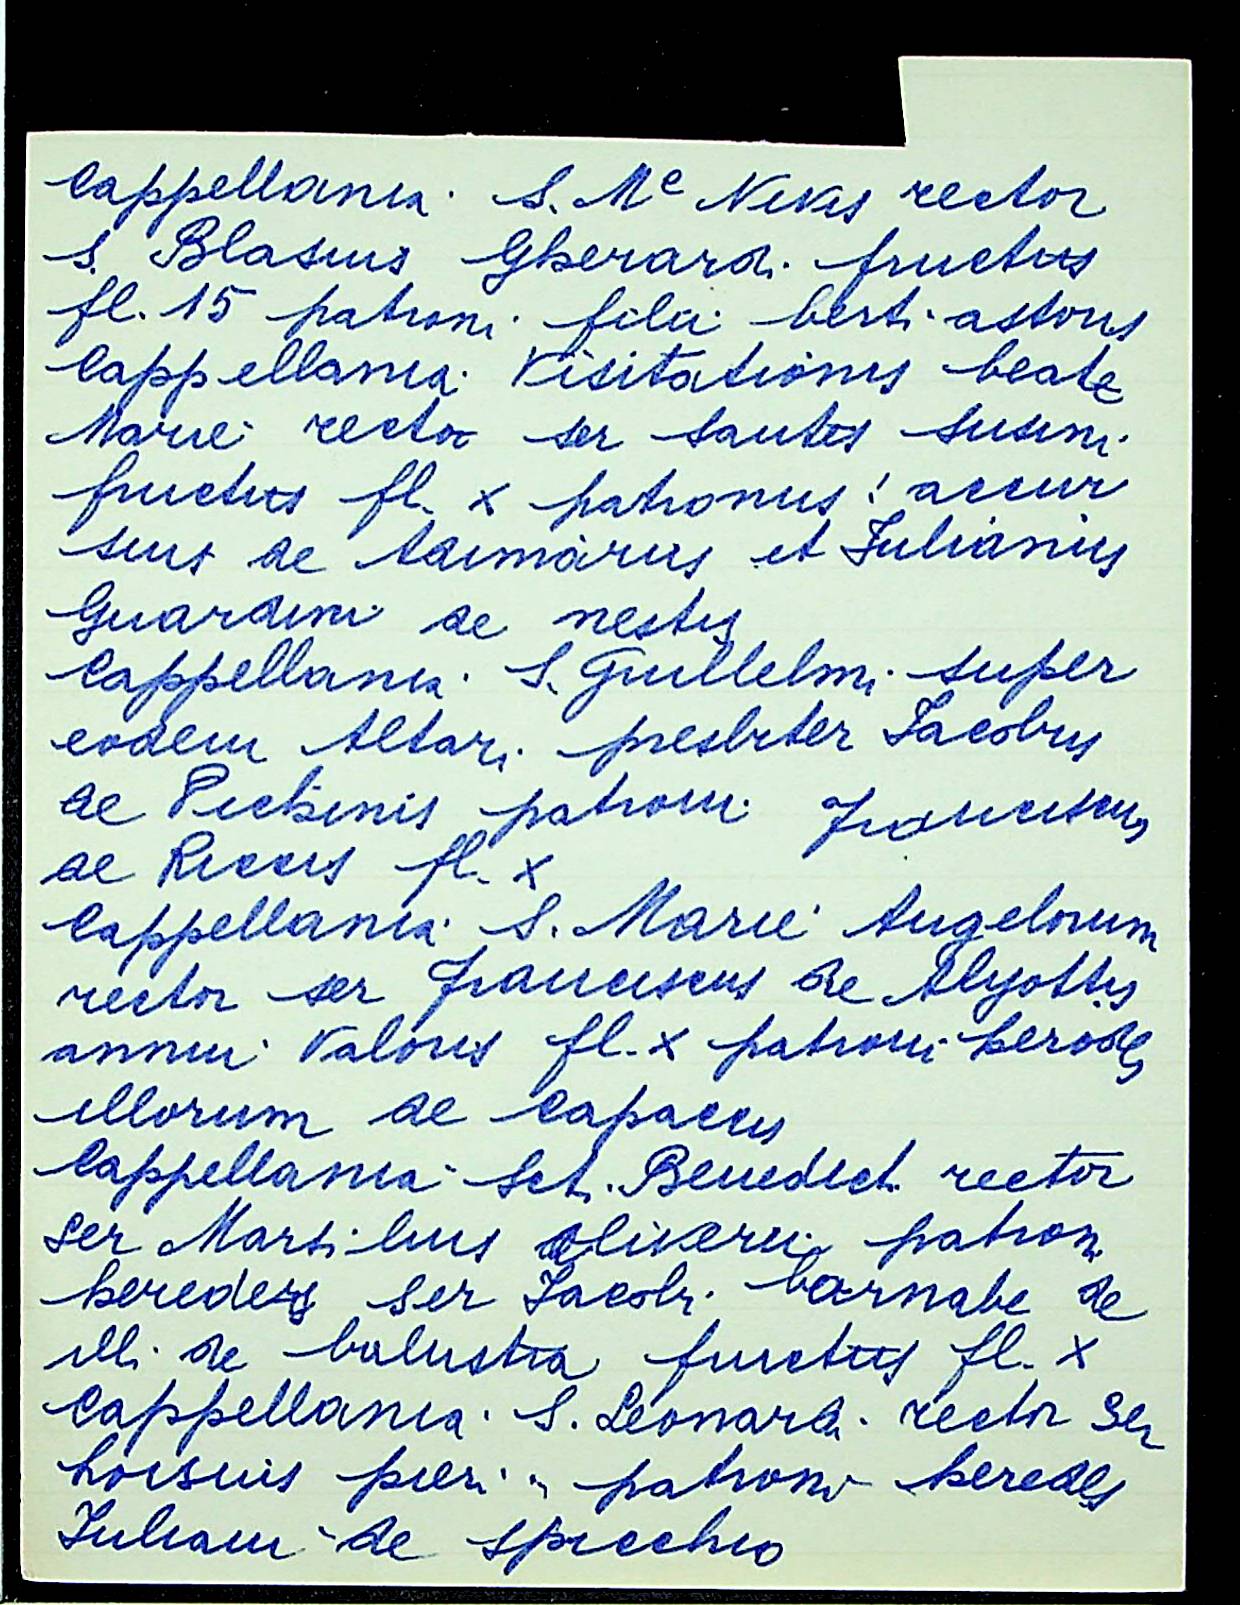 Cappellania S. Me Nivis rector
S. Blasius Gherardi fructus
fl. 15 patroni filii berti astoris
Cappellania Visitationis beate
Marie rector ser santes susini
fructus fl. x patronus accur
sius de Adimaris et Iulianus
Guardini de nestis
Cappellania S. Guillelmi super
eodem Altari presbiter Iacobus
de Pichinis patroni Franciscus
de Riccis fl. x
Cappellania S. Marie Angelorum
rector ser Franciscus de Alyottis
annui Valoris fl. x patroni heredes
illorum de Capaccis
Cappellania Scti. Benedicti rector
ser Martinus oliverii patroni
heredes ser Iacobi barnabe de
illi de balustra fructus fl. x
Cappellania S. Leonardi rector Ser
pieri " patroni heredes
Iuliani de spicchio